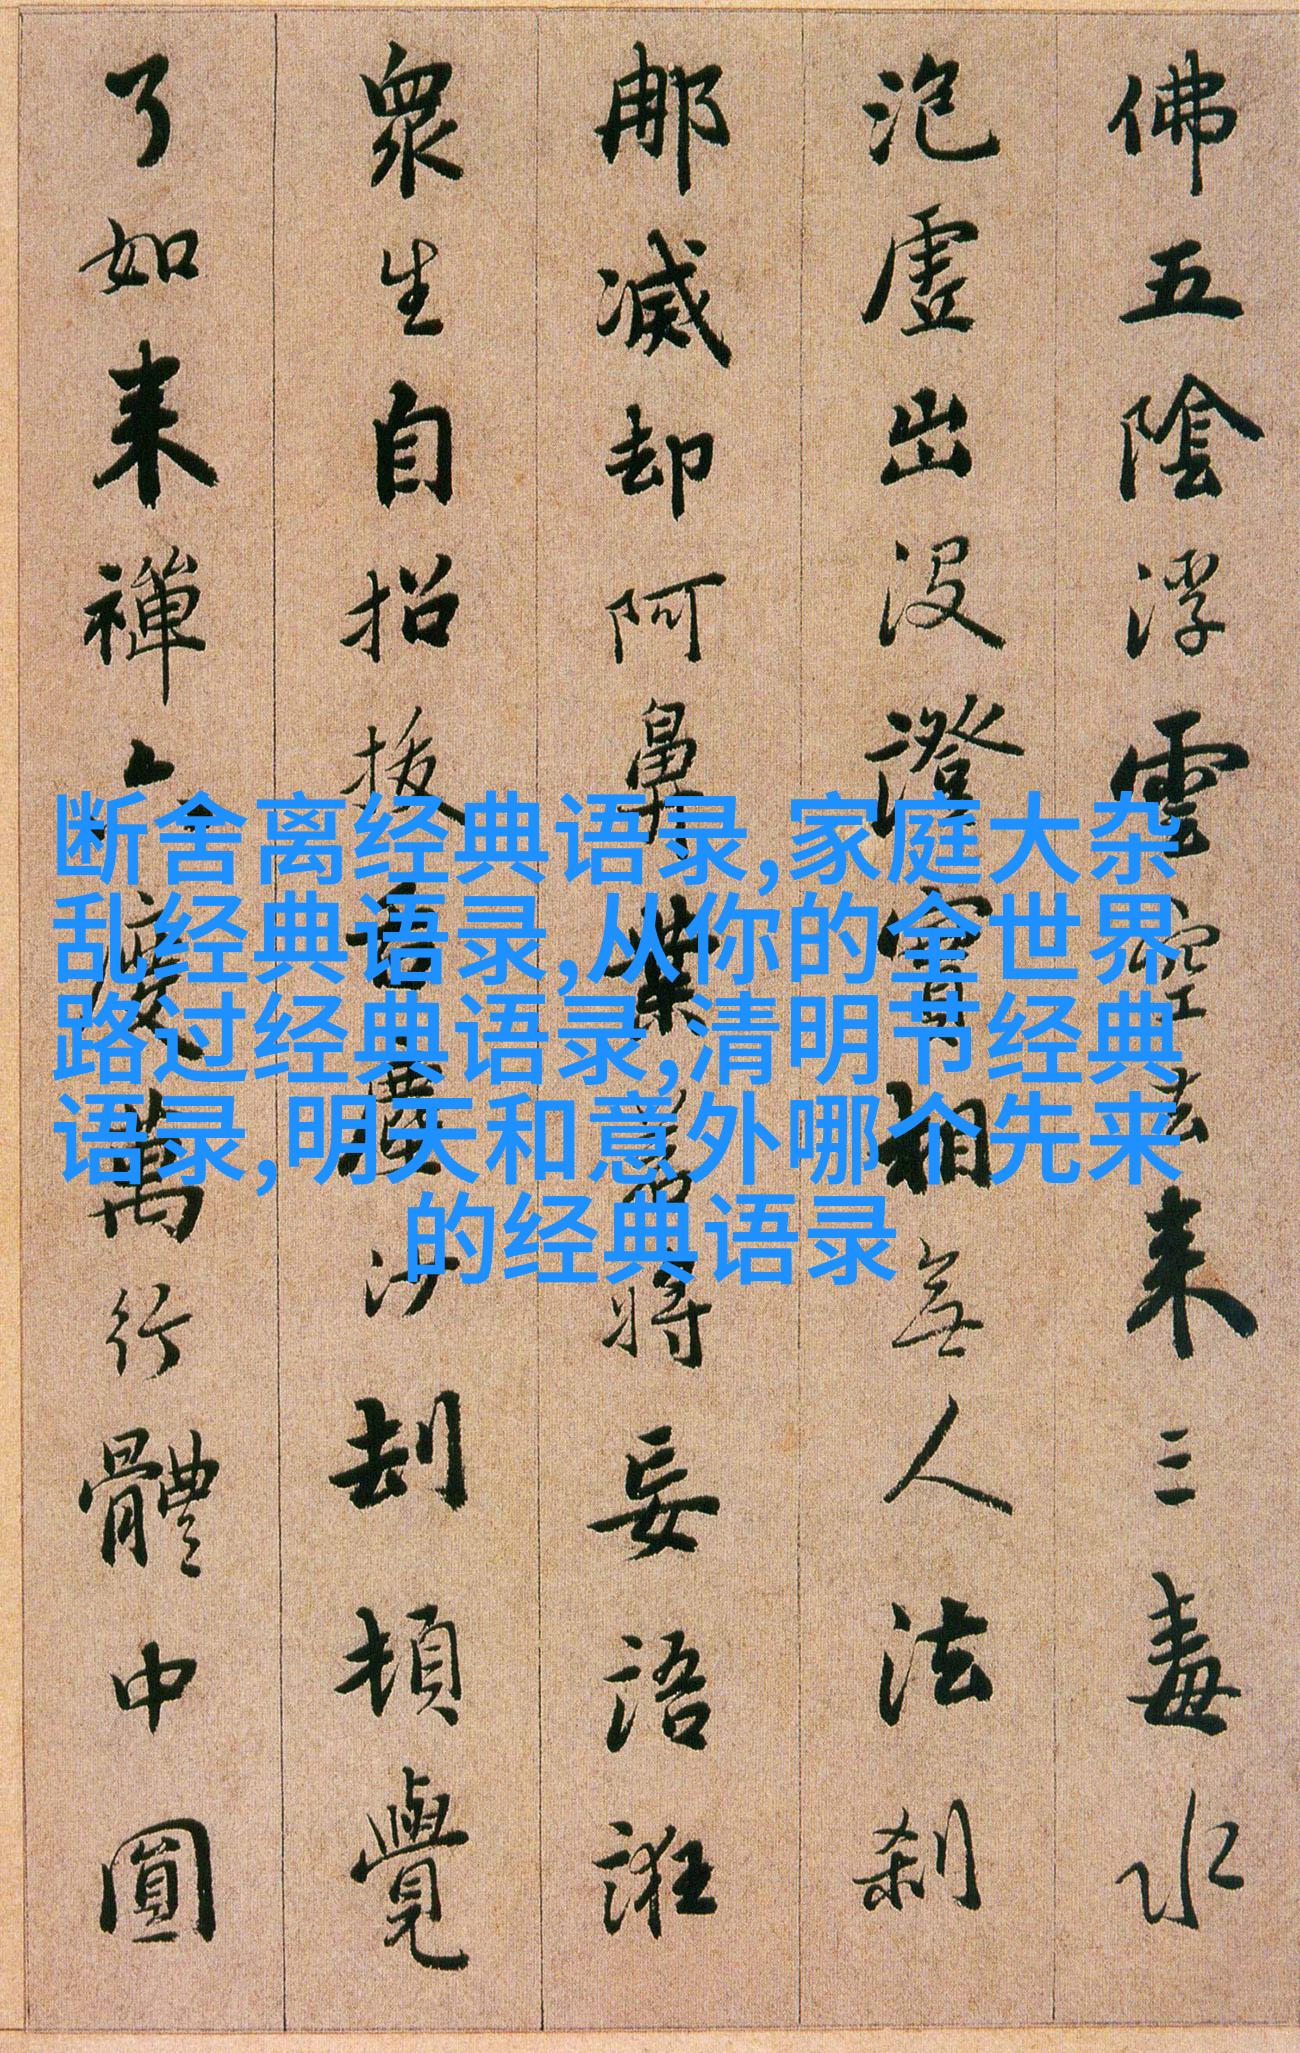 佛五陰浮雲空去来三毒水
泡虛出没證實相無人法刹
那滅却阿鼻業若将妄語誑
衆生自招拔舌塵沙劫頓覺
了如来禪六度萬行體中圓
断舍离经典语录,家庭大杂
乱经典语录,从你的全世界
路过经典语录,清明节经典
语录,明天和意外哪个先来
的经典语录